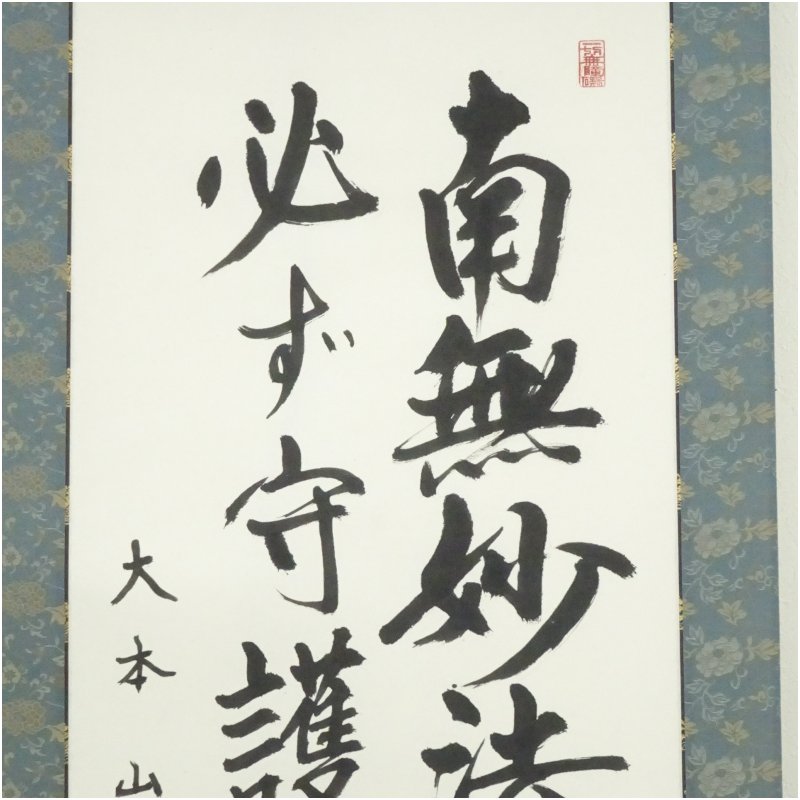 南無妙法
必ず守護
大本山